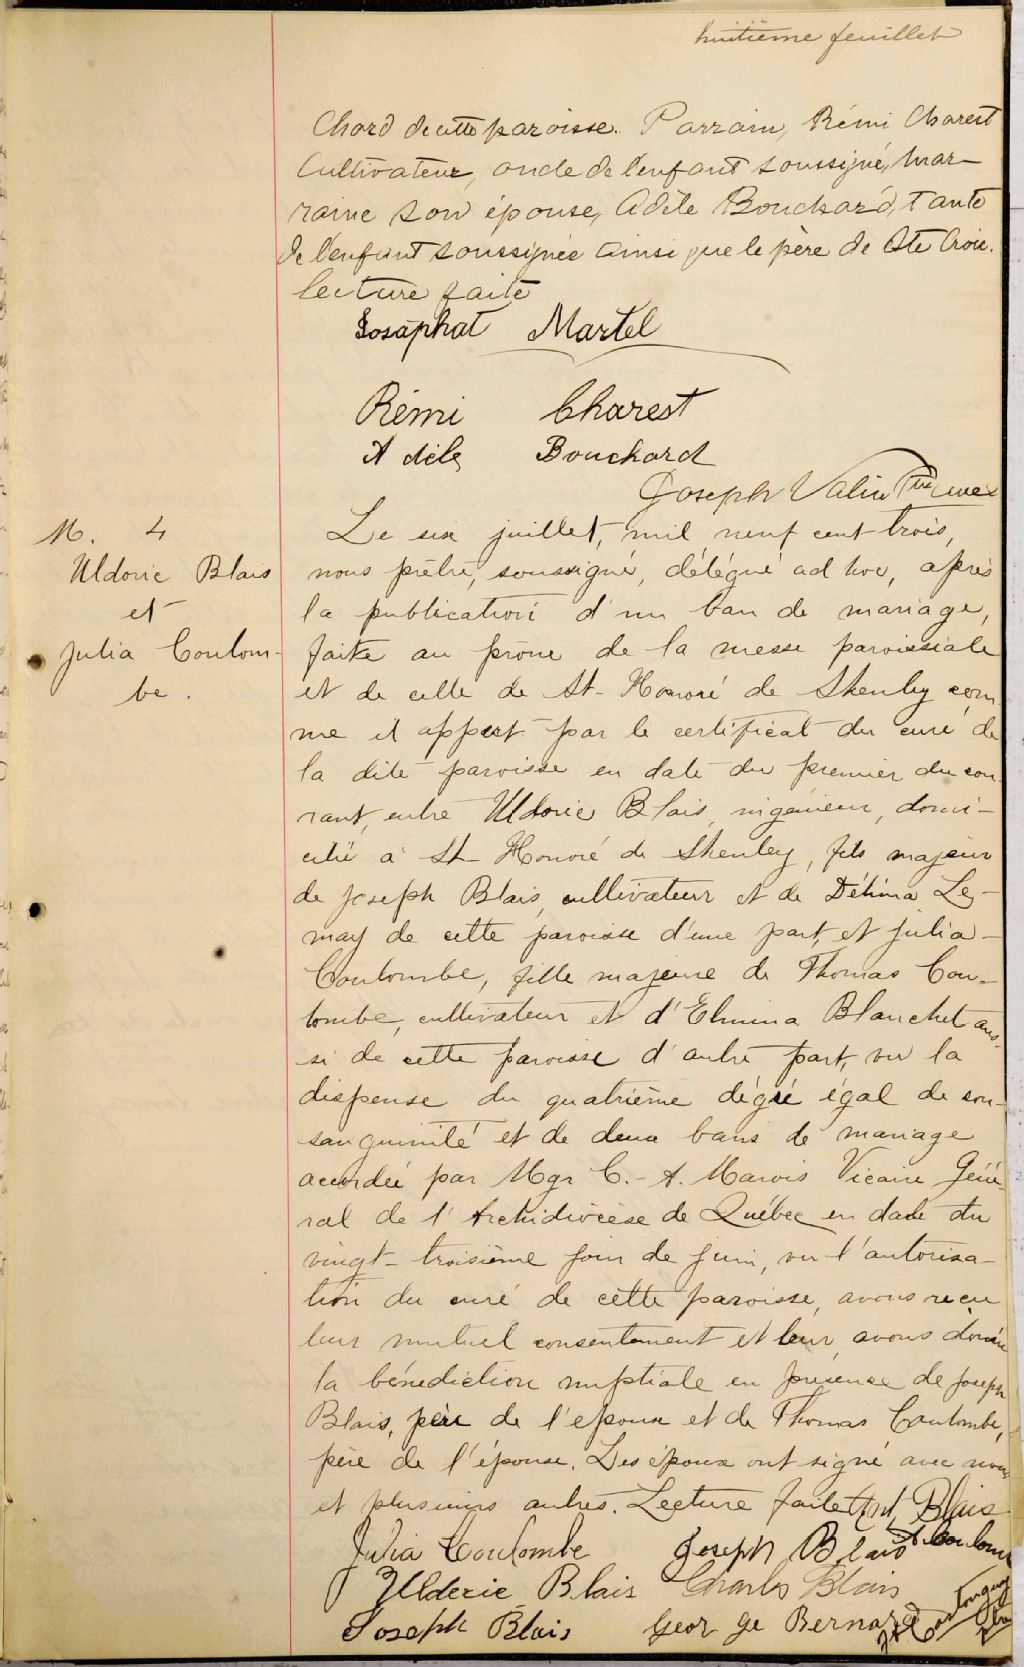 huitième feuillet
Chard de cette paroisse. Parrain, Rémi Charest
Cultivateur, oncle de l'enfant soussigné, mar-
raine son épouse, Adèle Bouchard, tante
de l'enfant soussignée ainsi que le père de Ste Croix.
lecture faite
Josaphat Martel
Rémi Charest
Adèle Bouchard
Joseph Valin Ptre curé
M. 4
Uldoric Blais
et
Julia Coulom-
be.
Le six juillet, mil neuf cent trois,
nous prêtre, soussigné, délégué ad hoc, après
la publication d'un ban de mariage,
faite au prône de la messe paroissiale
et de celle de St-Honoré de Shenley com
me il appert par le certificat du curé de
la dite paroisse en date du premier du cou-
rant, entre Uldoric Blais, ingénieur, domi-
cilié à St-Honoré de Shenley, fils majeur
de Joseph Blais, cultivateur et de Délima Le-
may de cette paroisse d'une part, et Julia
Coulombe, fille majeure de Thomas Cou-
lombe, cultivateur et d'Elmina Blanchet aus-
si de cette paroisse d'autre part, vu la
dispense du quatrième dégré égal de con-
sanguinité et de deux bans de mariage
accordée par Mgr C.-A. Marois Vicaire Géné-
ral de l'Archidiocèse de Québec en date du
vingt-troisième jour de juin, vu l'autorisa-
tion du curé de cette paroisse, avons reçu
leur mutuel consentement et leur avons donné
la bénédiction nuptiale en présence de Joseph
Blais, père de l'époux et de Thomas Coulombe,
père de l'épouse. Les époux ont signé avec nous
et plusieurs autres. Lecture faite Ant. Blais
Julia Coulombe Joseph Blais
Ulderic Blais Charles Blais
Joseph Blais George Bernard